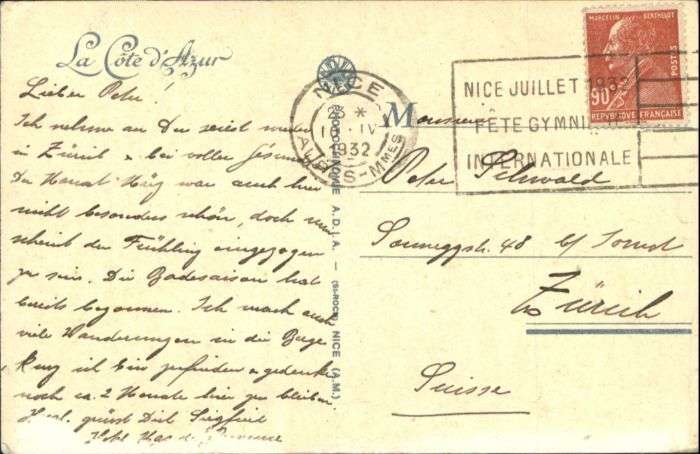 La Côte d'Azur
Lieber Peter!
Ich nehme an Du seiest wieder
in Zürich & bei voller
Der Monat März war auch hier
nicht besonders schön, doch nun
scheint der Frühling eingezogen
zu sein. Die Badesaison hat
bereits begonnen. Ich mach auch
viele Wanderungen in die Berge
Kurz ich bin zufrieden & gedenke
noch ca. 2 Monate hier zu bleiben.
Herzl. grüsst Dich Siegfried
NICE
IV
1932
ALPES-MMES
NICE JUILLET 1932
FÊTE GYMNI
INTERNATIONALE
MARCELIN BERTHELOT
POSTES
90c
REPUBLIQUE FRANÇAISE
A.D.I.A. — (St-ROCH) NICE (A.M.)
Monsieur
Peter
Sonneggstr. 48
Zürich
Suisse